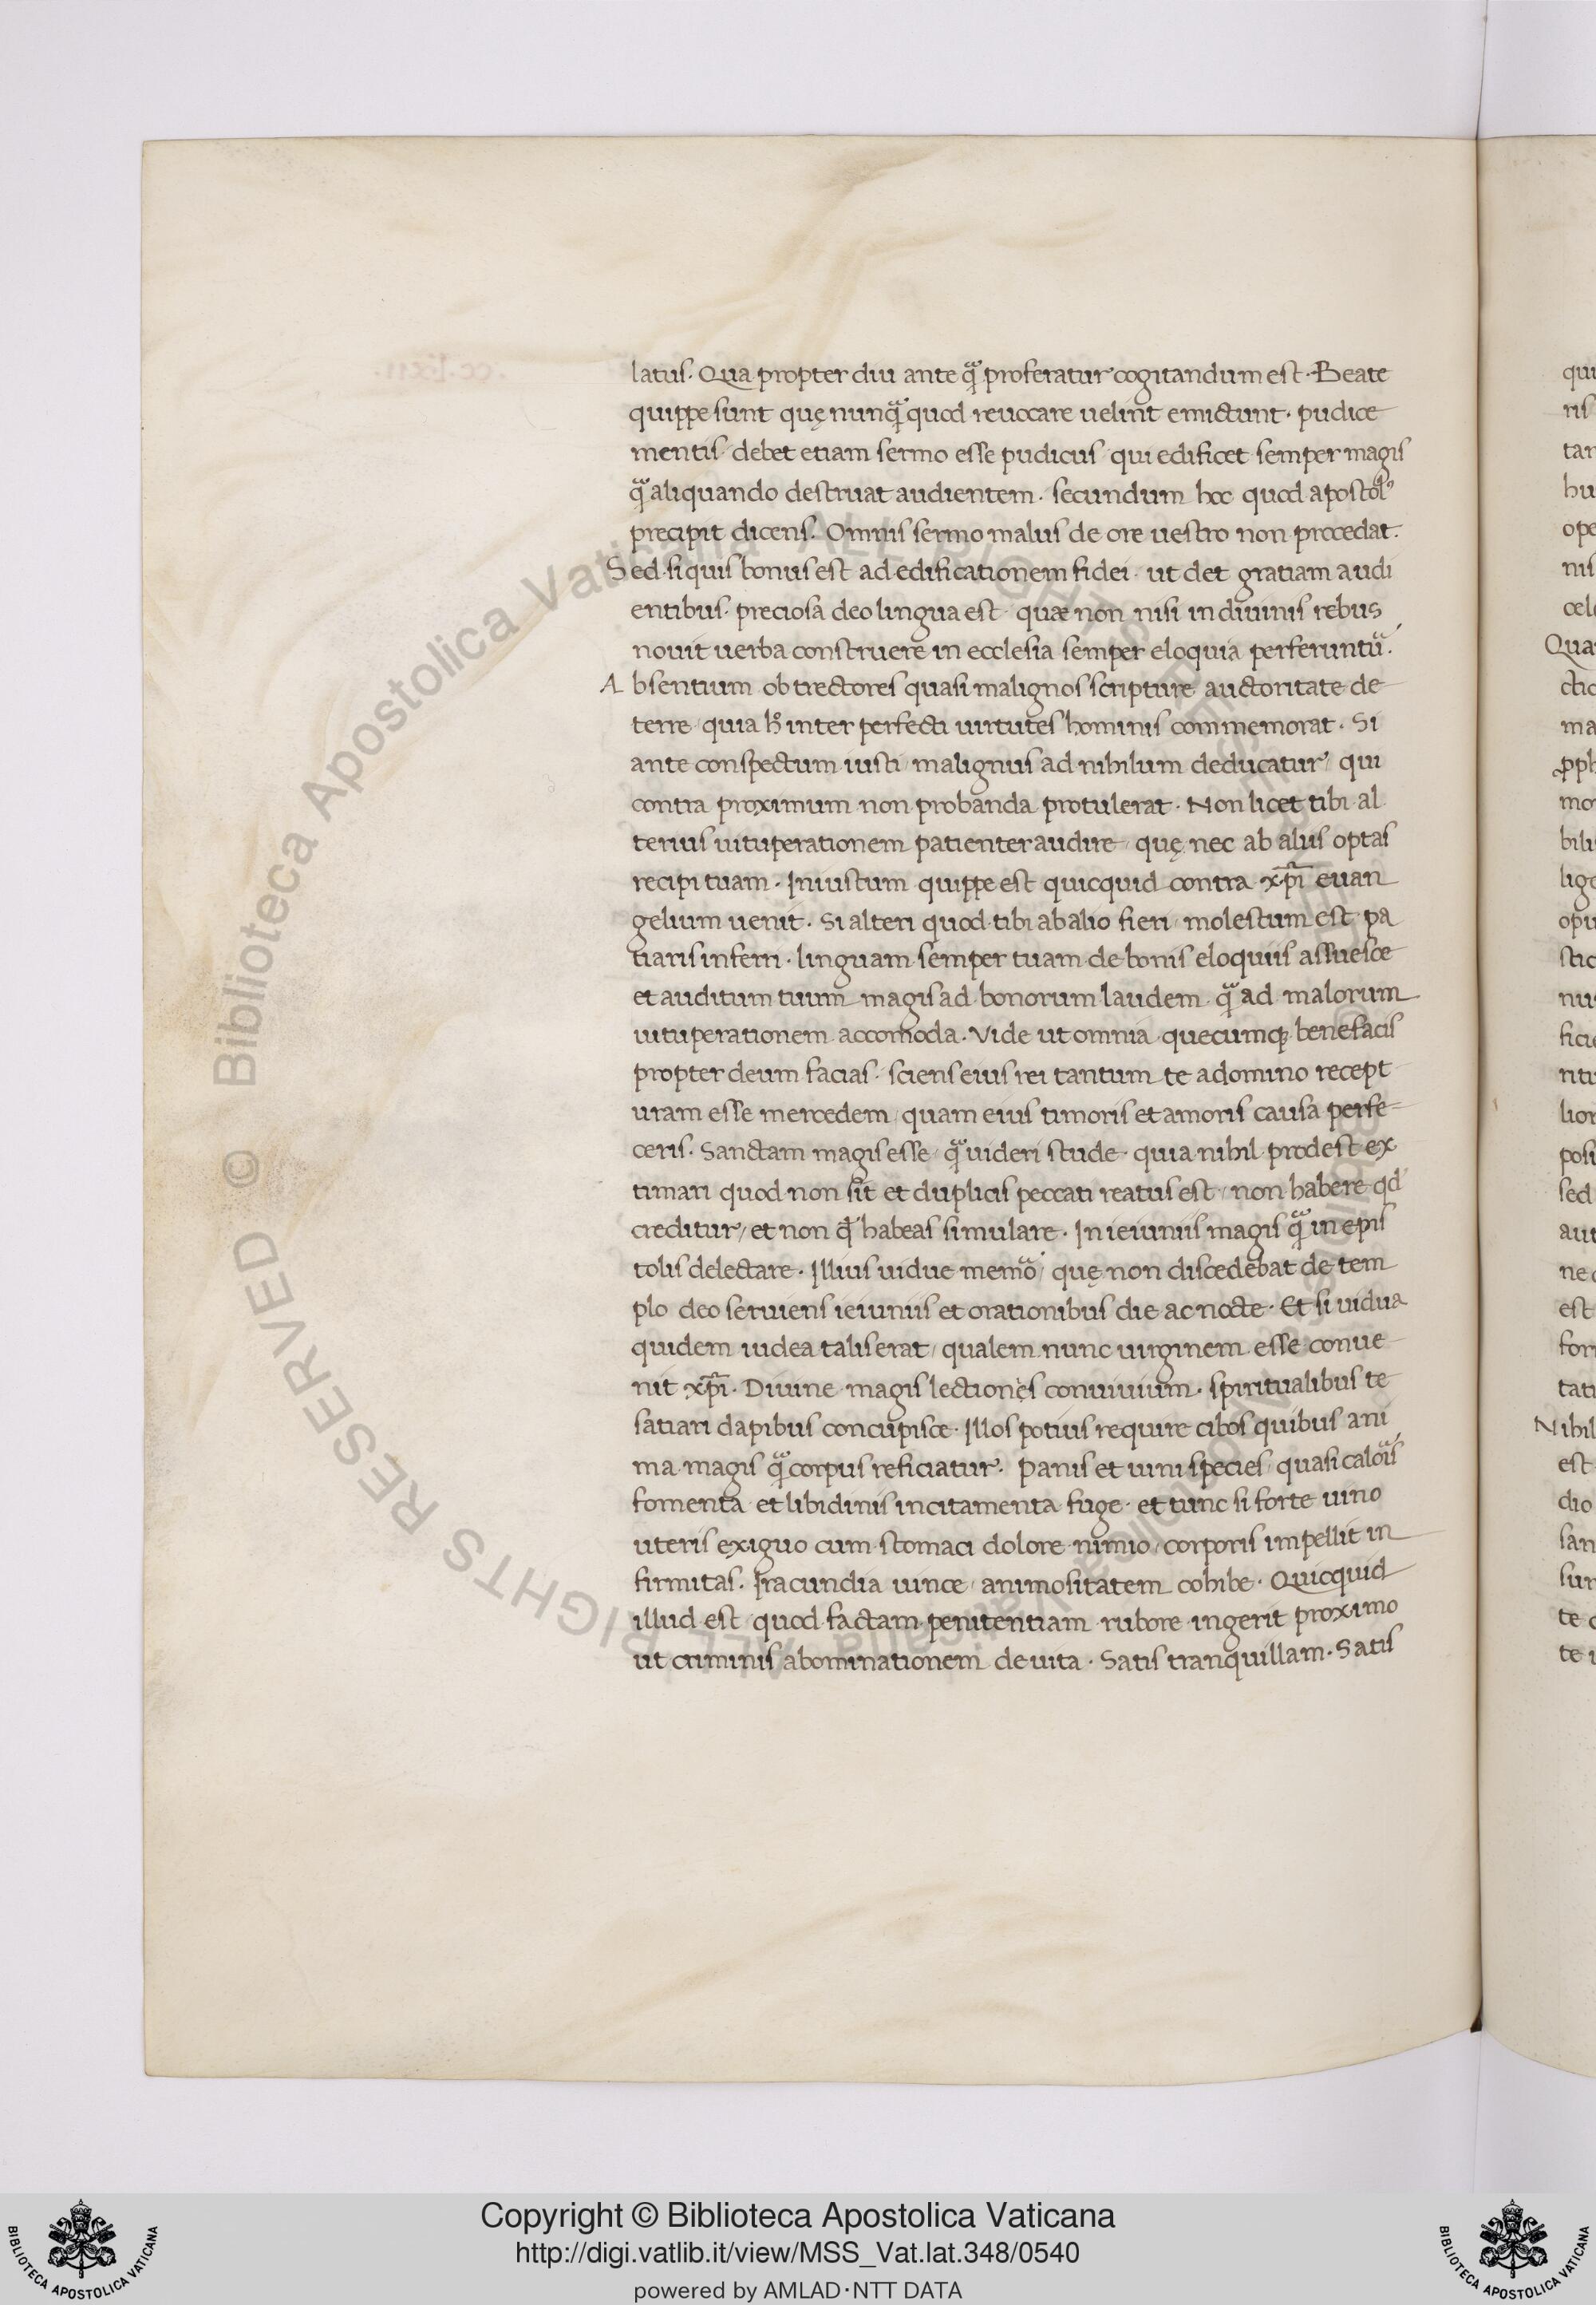 latus. Qua propter diu ante qᷓ proferatur cogitandum est. Beate
quippe sunt quę nunqᷓ quod reuocare uelint emictunt. pudice
mentis debet etiam sermo esse pudicus qui edificet semper magis
qᷓ aliquando destruat audientem. secundum hoc quod apostol᾿
precipit dicens. Omnis sermo malus de ore uestro non procedat.
Sed siquis bonus est ad edificationem fidei ut det gratiam audi
entibus. preciosa deo lingua est quae non nisi in diuinis rebus
nouit uerba construere in ecclesia semper eloquia perferuntᷓu.
Absentium obtrectores quasi malignos scripture auctoritate de
terre quia h̊ inter perfecti uirtutes hominis commemorat. Si
ante conspectum iusti malignus ad nihilum deducatur qui
contra proximum non probanda protulerat. Non licet tibi al
terius uituperationem patienter audire quę nec ab aliis optas
recipi tuam. Iniustum quippe est quicquid contra xp̄i euan
gelium uenit. Si alteri quod tibi ab alio fieri molestum est pa
tiaris inferri. linguam semper tuam de bonis eloquiis assuesce
et auditum tuum magis ad bonorum laudem qᷓ ad malorum
uituperationem accomoda. Vide ut omnia quecumq; benefacis
propter deum facias. sciens eius rei tantum te adomino recept
uram esse mercedem quam eius timoris et amoris causa perfe=
ceris. Sanctam magis esse qᷓ uideri stude. quia nihil prodest ex
timari quod non sit et duplicis peccati reatus est non habere qd
creditur et non qd̵ habeas simulare. In ieiuniis magis qᷓ in epis
tolis delectare. Illius uidue memoᷓ quę non discedebat de tem
plo deo seruiens ieiuniis et orationibus die ac nocte. Et si uidua
quidem iudea talis erat qualem nunc uirginem esse conue
nit xp̄i. Diuine magis lectiones conuiuium. spiritualibus te
satiari dapibus concupisce. Illos potius require cibos quibus ani
ma magis qᷓ corpus reficiatur. Panis et uini species quasi caloᷓis
fomenta et libidinis incitamenta fuge. et tunc si forte uino
uteris exiguo cum stomaci dolore nimio corporis impellit in
firmitas. Iracundia uince animositatem cohibe. Quicquid
illud est quod factam penitentiam rubore ingerit proximo
ut criminis abominationem deuita. Satis tranquillam. Satis
qui
ris
tan
hu
ope
nis
cele
Qua
ctio
ma
pph
mo
bili
lig
opu
stic
nu
ficie
nti
lior
posi
sed
aut
ne
est
for
tati
Nihil
est
dio
san
sur
te
te
© Biblioteca Apostolica Vaticana ALL RIGHTS RESERVED
Copyright © Biblioteca Apostolica Vaticana
http://digi.vatlib.it/view/MSS_Vat.lat.348/0540
powered by AMLAD·NTT DATA
BIBLIOTECA APOSTOLICA VATICANA
BIBLIOTECA APOSTOLICA VATICANA